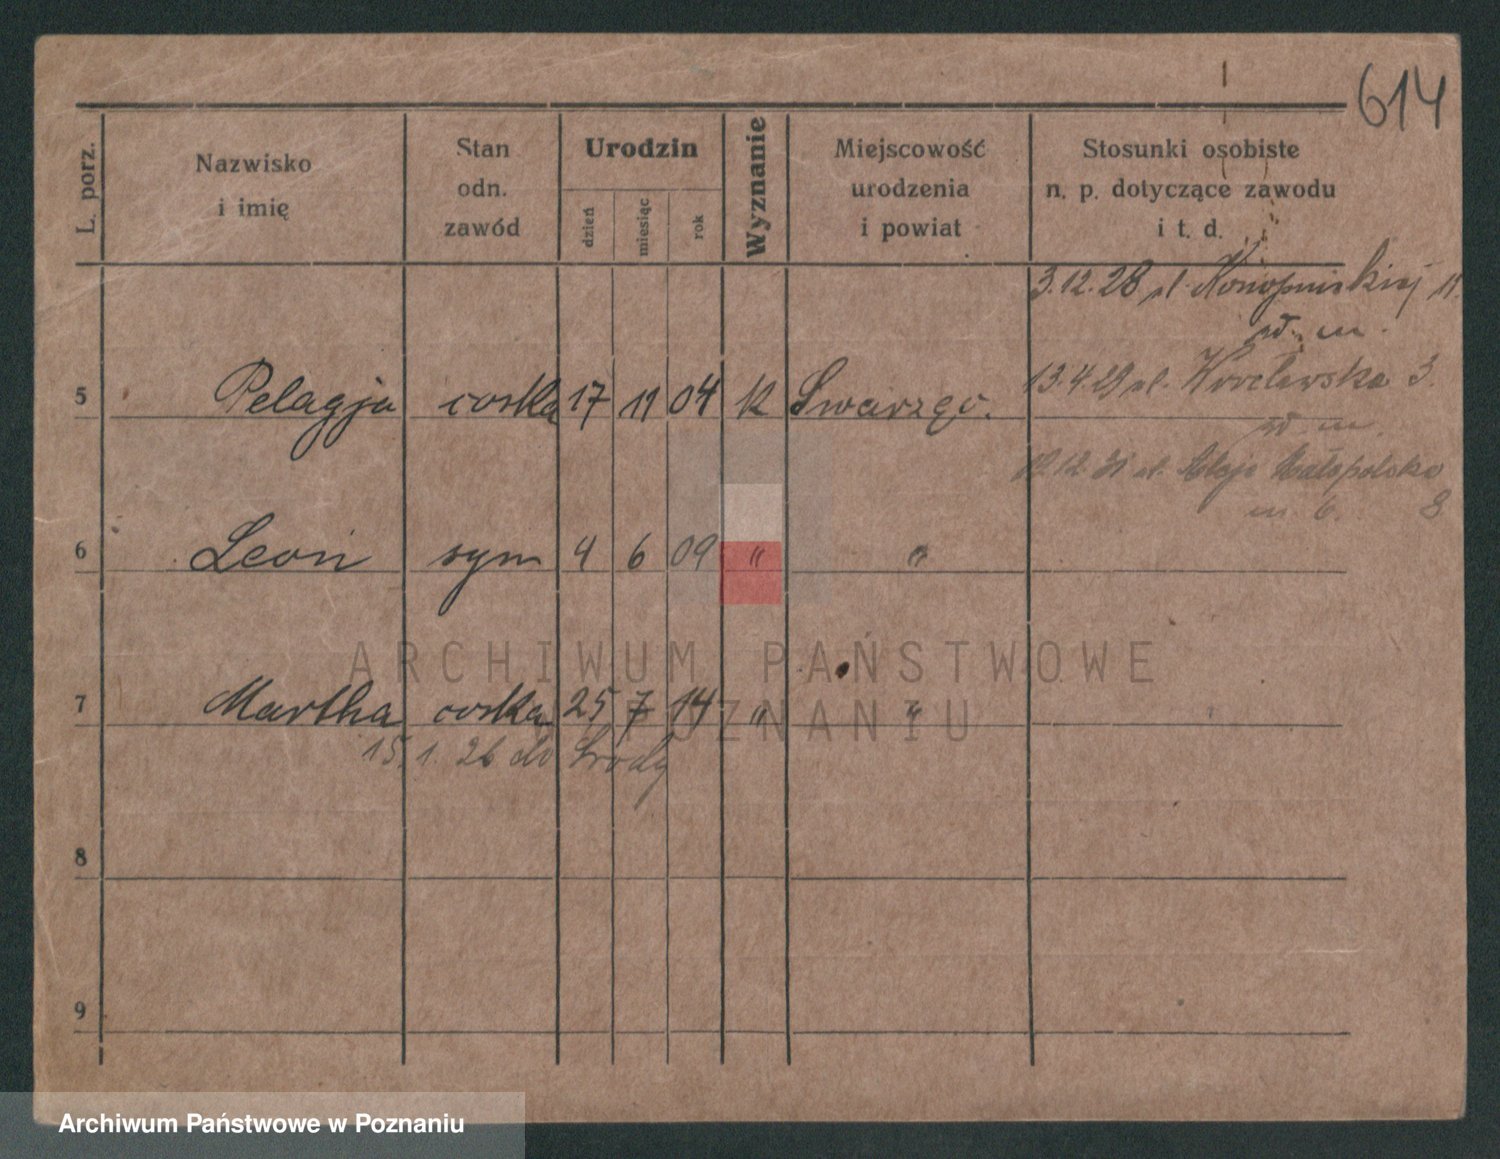 614
L. porz.
Nazwisko
i imię
Stan
odn.
zawód
Urodzin
dzień
miesiąc
rok
Wyznanie
Miejscowość
urodzenia
i powiat
Stosunki osobiste
n. p. dotyczące zawodu
i t. d.
3.12.28 ul. Konopnickiej 11.
w. m.
5 Pelagja córka 17 11 04 k Swarzęc.
13.4.29 ul. Wrocławska 3.
w. m.
12.12.31 ul. Aleje Małopolska
m. 6. 8
6 Leon syn 4 6 09 " "
ARCHIWUM PAŃSTWOWE
7 Martha córka 25 7 14 " "
W POZNANIU
15.1.26 do Środy
8
9
Archiwum Państwowe w Poznaniu